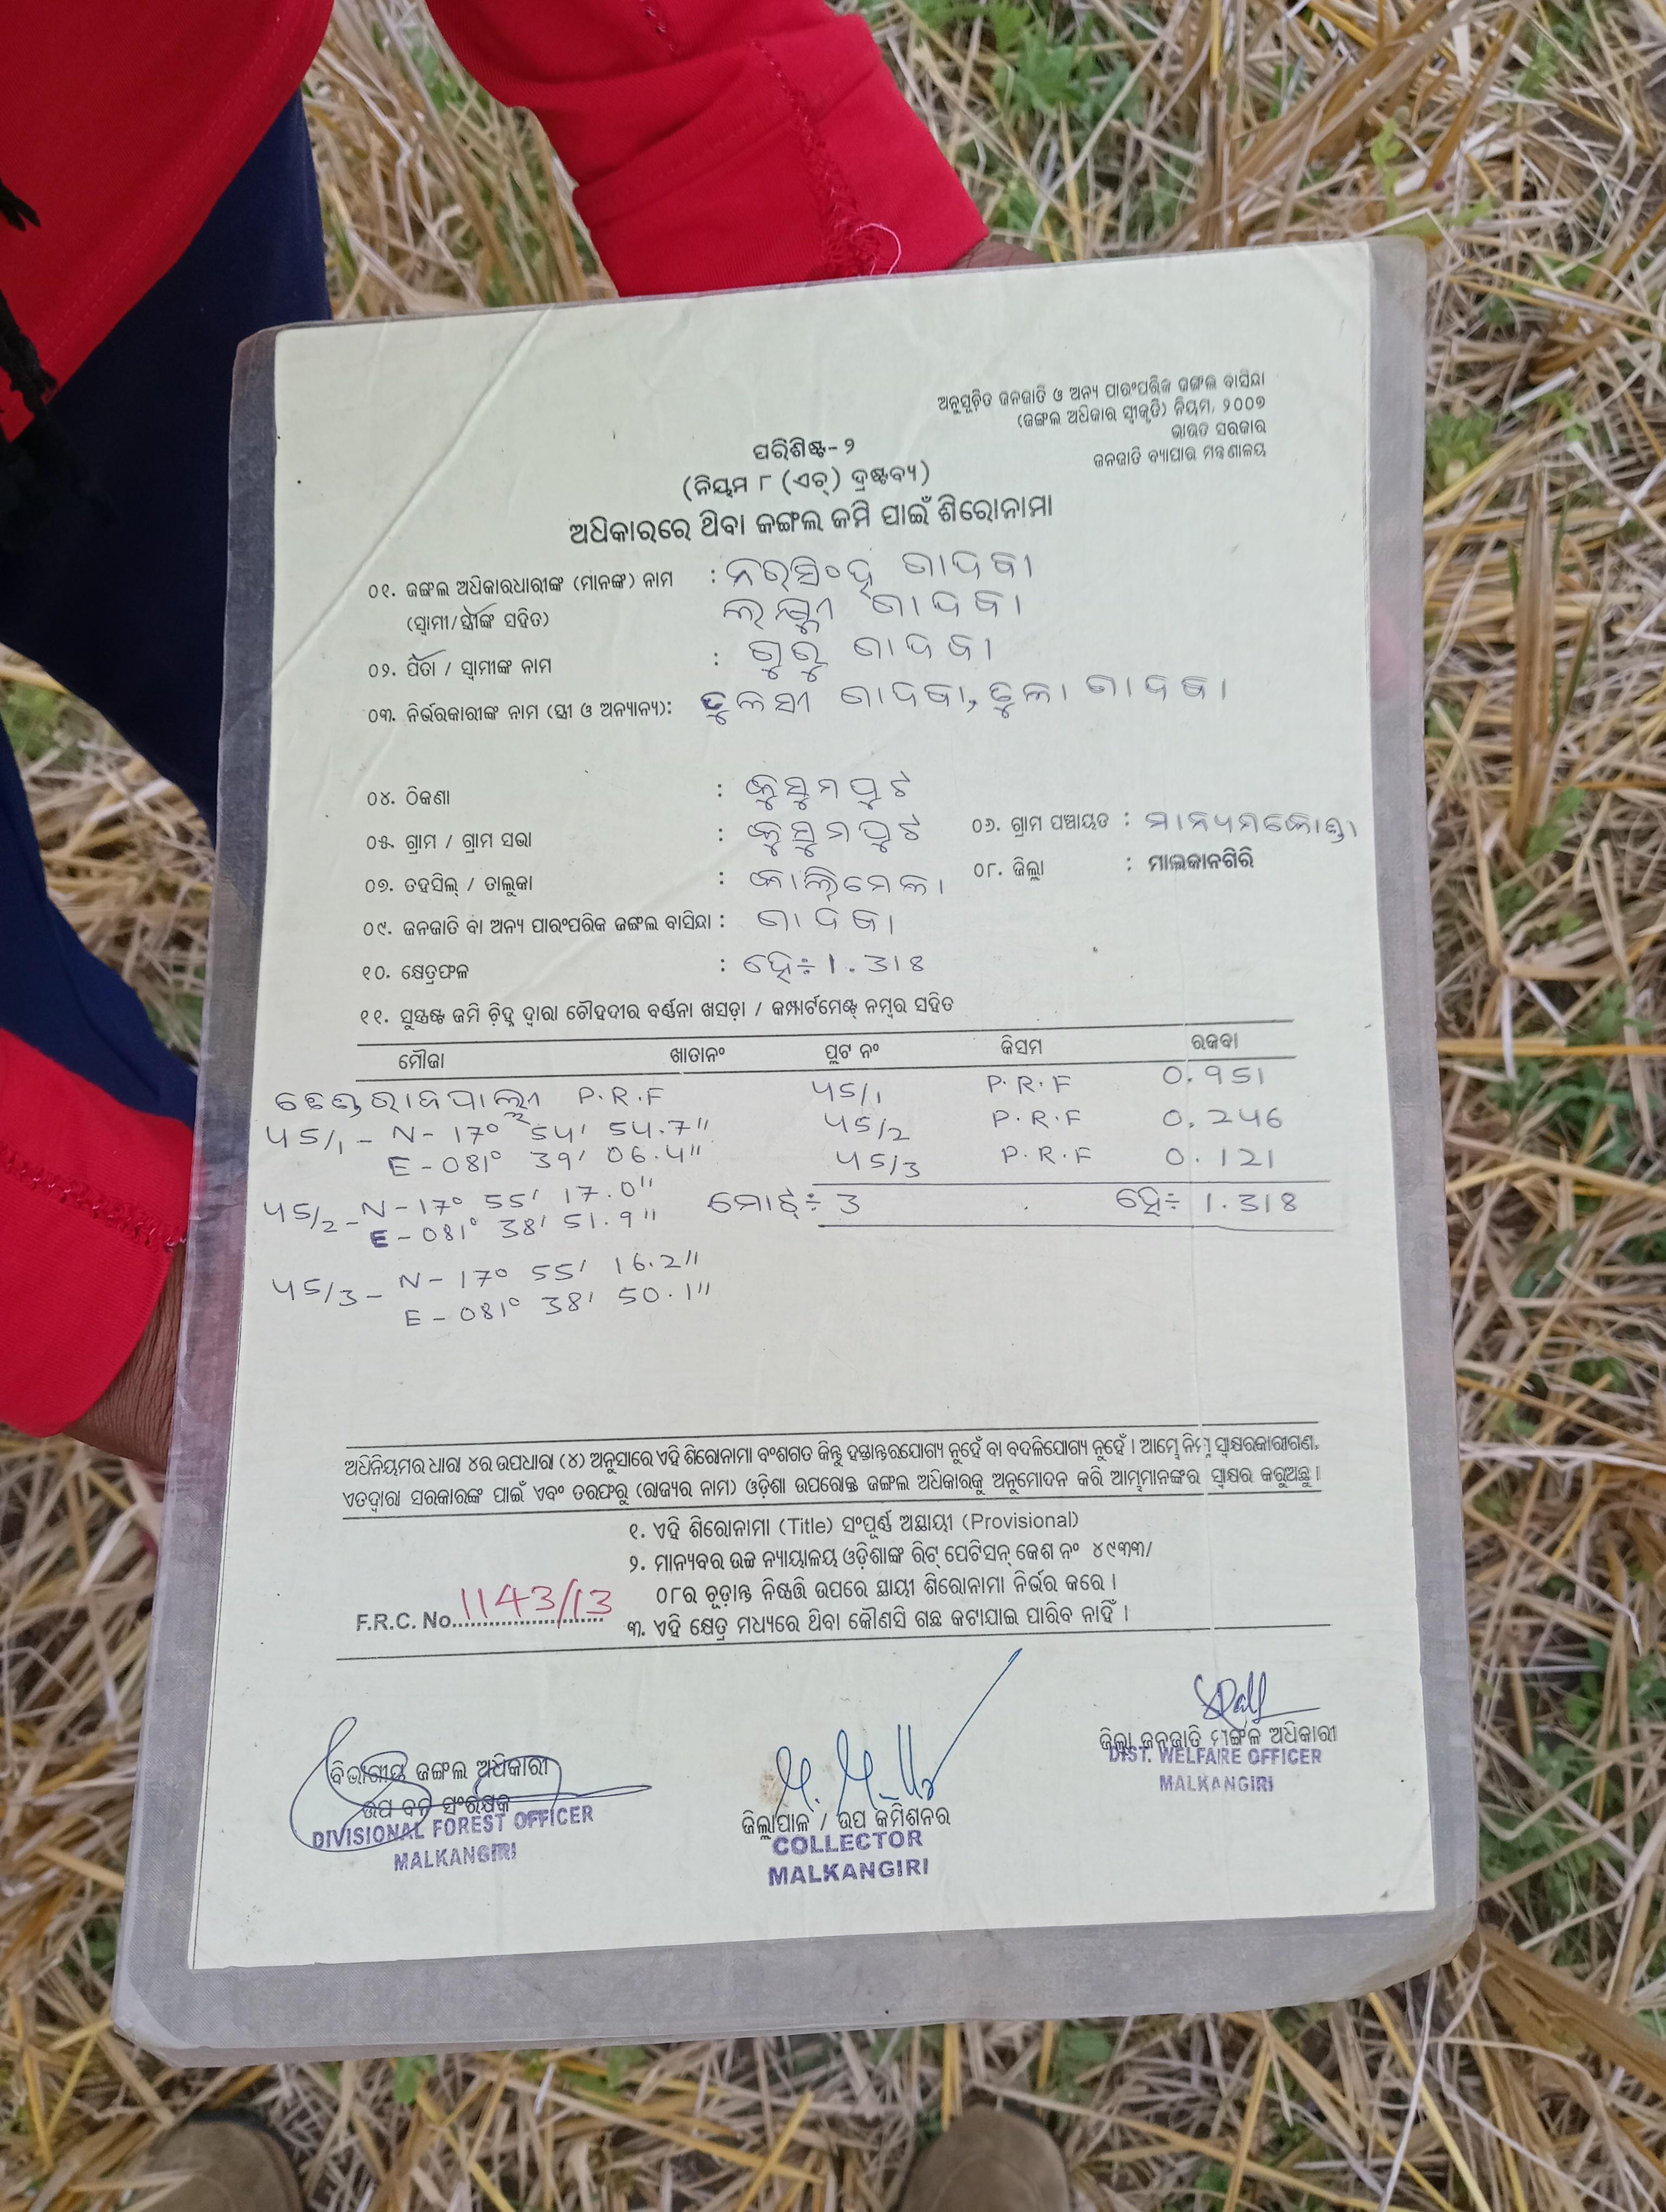 ଅନୁସୂଚିତ ଜନଜାତି ଓ ଅନ୍ୟ ପାରଂପରିକ ଜଙ୍ଗଲ ବାସିନ୍ଦା
(ଜଙ୍ଗଲ ଅଧିକାର ସ୍ୱୀକୃତି) ନିୟମ, ୨୦୦୭
ଭାରତ ସରକାର
ଜନଜାତି ବ୍ୟାପାର ମନ୍ତ୍ରଣାଳୟ
ପରିଶିଷ୍ଟ-୨
(ନିୟମ ୮ (ଏଚ୍) ଦ୍ରଷ୍ଟବ୍ୟ)
ଅଧିକାରରେ ଥିବା ଜଙ୍ଗଲ ଜମି ପାଇଁ ଶିରୋନାମା
୦୧. ଜଙ୍ଗଲ ଅଧିକାରଧାରୀଙ୍କ (ମାନଙ୍କ) ନାମ : ନରସିଂହ ଗାଦବା
(ସ୍ୱାମୀ/ସ୍ତ୍ରୀଙ୍କ ସହିତ) ଲକ୍ଷ୍ମୀ ଗାଦବା
୦୨. ପିତା / ସ୍ୱାମୀଙ୍କ ନାମ : ଗୁରୁ ଗାଦବା
୦୩. ନିର୍ଭରକାରୀଙ୍କ ନାମ (ସ୍ତ୍ରୀ ଓ ଅନ୍ୟାନ୍ୟ): ତୁଳସୀ ଗାଦବା, ତୁଳା ଗାଦବା
୦୪. ଠିକଣା : କୁସୁମପୁଟ
୦୫. ଗ୍ରାମ / ଗ୍ରାମ ସଭା : କୁସୁମପୁଟ ୦୬. ଗ୍ରାମ ପଞ୍ଚାୟତ : ମାନ୍ୟମକୋଣ୍ଡା
୦୭. ତହସିଲ୍ / ତାଲୁକା : କାଲିମେଳା ୦୮. ଜିଲ୍ଲା : ମାଲକାନଗିରି
୦୯. ଜନଜାତି ବା ଅନ୍ୟ ପାରଂପରିକ ଜଙ୍ଗଲ ବାସିନ୍ଦା : ଗାଦବା
୧୦. କ୍ଷେତ୍ରଫଳ : ହେ÷ 1.318
୧୧. ସୁସ୍ପଷ୍ଟ ଜମି ଚିହ୍ନ ଦ୍ୱାରା ଚୌହଦୀର ବର୍ଣ୍ଣନା ଖସଡ଼ା / କମ୍ପାର୍ଟମେଣ୍ଟ ନମ୍ବର ସହିତ
ମୌଜା ଖାତାନଂ ପ୍ଲଟ ନଂ କିସମ ରକବା
P.R.F 45/1 P.R.F 0.951
45/1 - N - 17° 54' 54.7" 45/2 P.R.F 0.246
E - 081° 39' 06.4" 45/3 P.R.F 0.121
45/2 - N - 17° 55' 17.0" ମୋଟ୍÷ 3 ହେ÷ 1.318
E - 081° 38' 51.9"
45/3 - N - 17° 55' 16.2"
E - 081° 38' 50.1"
ଅଧିନିୟମର ଧାରା ୪ର ଉପଧାରା (୪) ଅନୁସାରେ ଏହି ଶିରୋନାମା ବଂଶଗତ କିନ୍ତୁ ହସ୍ତାନ୍ତରଯୋଗ୍ୟ ନୁହେଁ ବା ବଦଳିଯୋଗ୍ୟ ନୁହେଁ । ଆମ୍ଭେ ନିମ୍ନ ସ୍ୱାକ୍ଷରକାରୀଗଣ,
ଏତଦ୍ୱାରା ସରକାରଙ୍କ ପାଇଁ ଏବଂ ତରଫରୁ (ରାଜ୍ୟର ନାମ) ଓଡ଼ିଶା ଉପରୋକ୍ତ ଜଙ୍ଗଲ ଅଧିକାରକୁ ଅନୁମୋଦନ କରି ଆମ୍ଭମାନଙ୍କର ସ୍ୱାକ୍ଷର କରୁଅଛୁ ।
୧. ଏହି ଶିରୋନାମା (Title) ସଂପୂର୍ଣ୍ଣ ଅସ୍ଥାୟୀ (Provisional)
୨. ମାନ୍ୟବର ଉଚ୍ଚ ନ୍ୟାୟାଳୟ ଓଡ଼ିଶାଙ୍କ ରିଟ୍ ପେଟିସନ୍ କେଶ ନଂ ୪୯୩୩/
୦୮ର ଚୂଡ଼ାନ୍ତ ନିଷ୍ପତ୍ତି ଉପରେ ସ୍ଥାୟୀ ଶିରୋନାମା ନିର୍ଭର କରେ ।
F.R.C. No. 1143/13
୩. ଏହି କ୍ଷେତ୍ର ମଧ୍ୟରେ ଥିବା କୌଣସି ଗଛ କଟାଯାଇ ପାରିବ ନାହିଁ ।
ଜିଲ୍ଲା ଜନଜାତି ମଙ୍ଗଳ ଅଧିକାରୀ
DIST. WELFARE OFFICER
MALKANGIRI
ବିଭାଗୀୟ ଜଙ୍ଗଲ ଅଧିକାରୀ
ଉପ ବନ ସଂରକ୍ଷକ
DIVISIONAL FOREST OFFICER
MALKANGIRI
ଜିଲ୍ଲାପାଳ / ଉପ କମିଶନର
COLLECTOR
MALKANGIRI